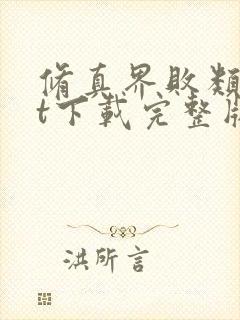 修真界败類
t下載完整版
洪所言